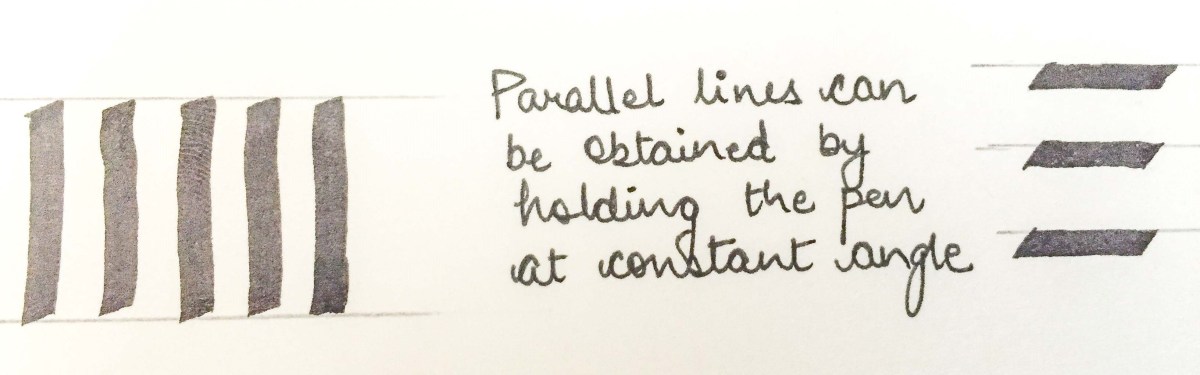 Parallel lines can
be obtained by
holding the pen
at constant angle